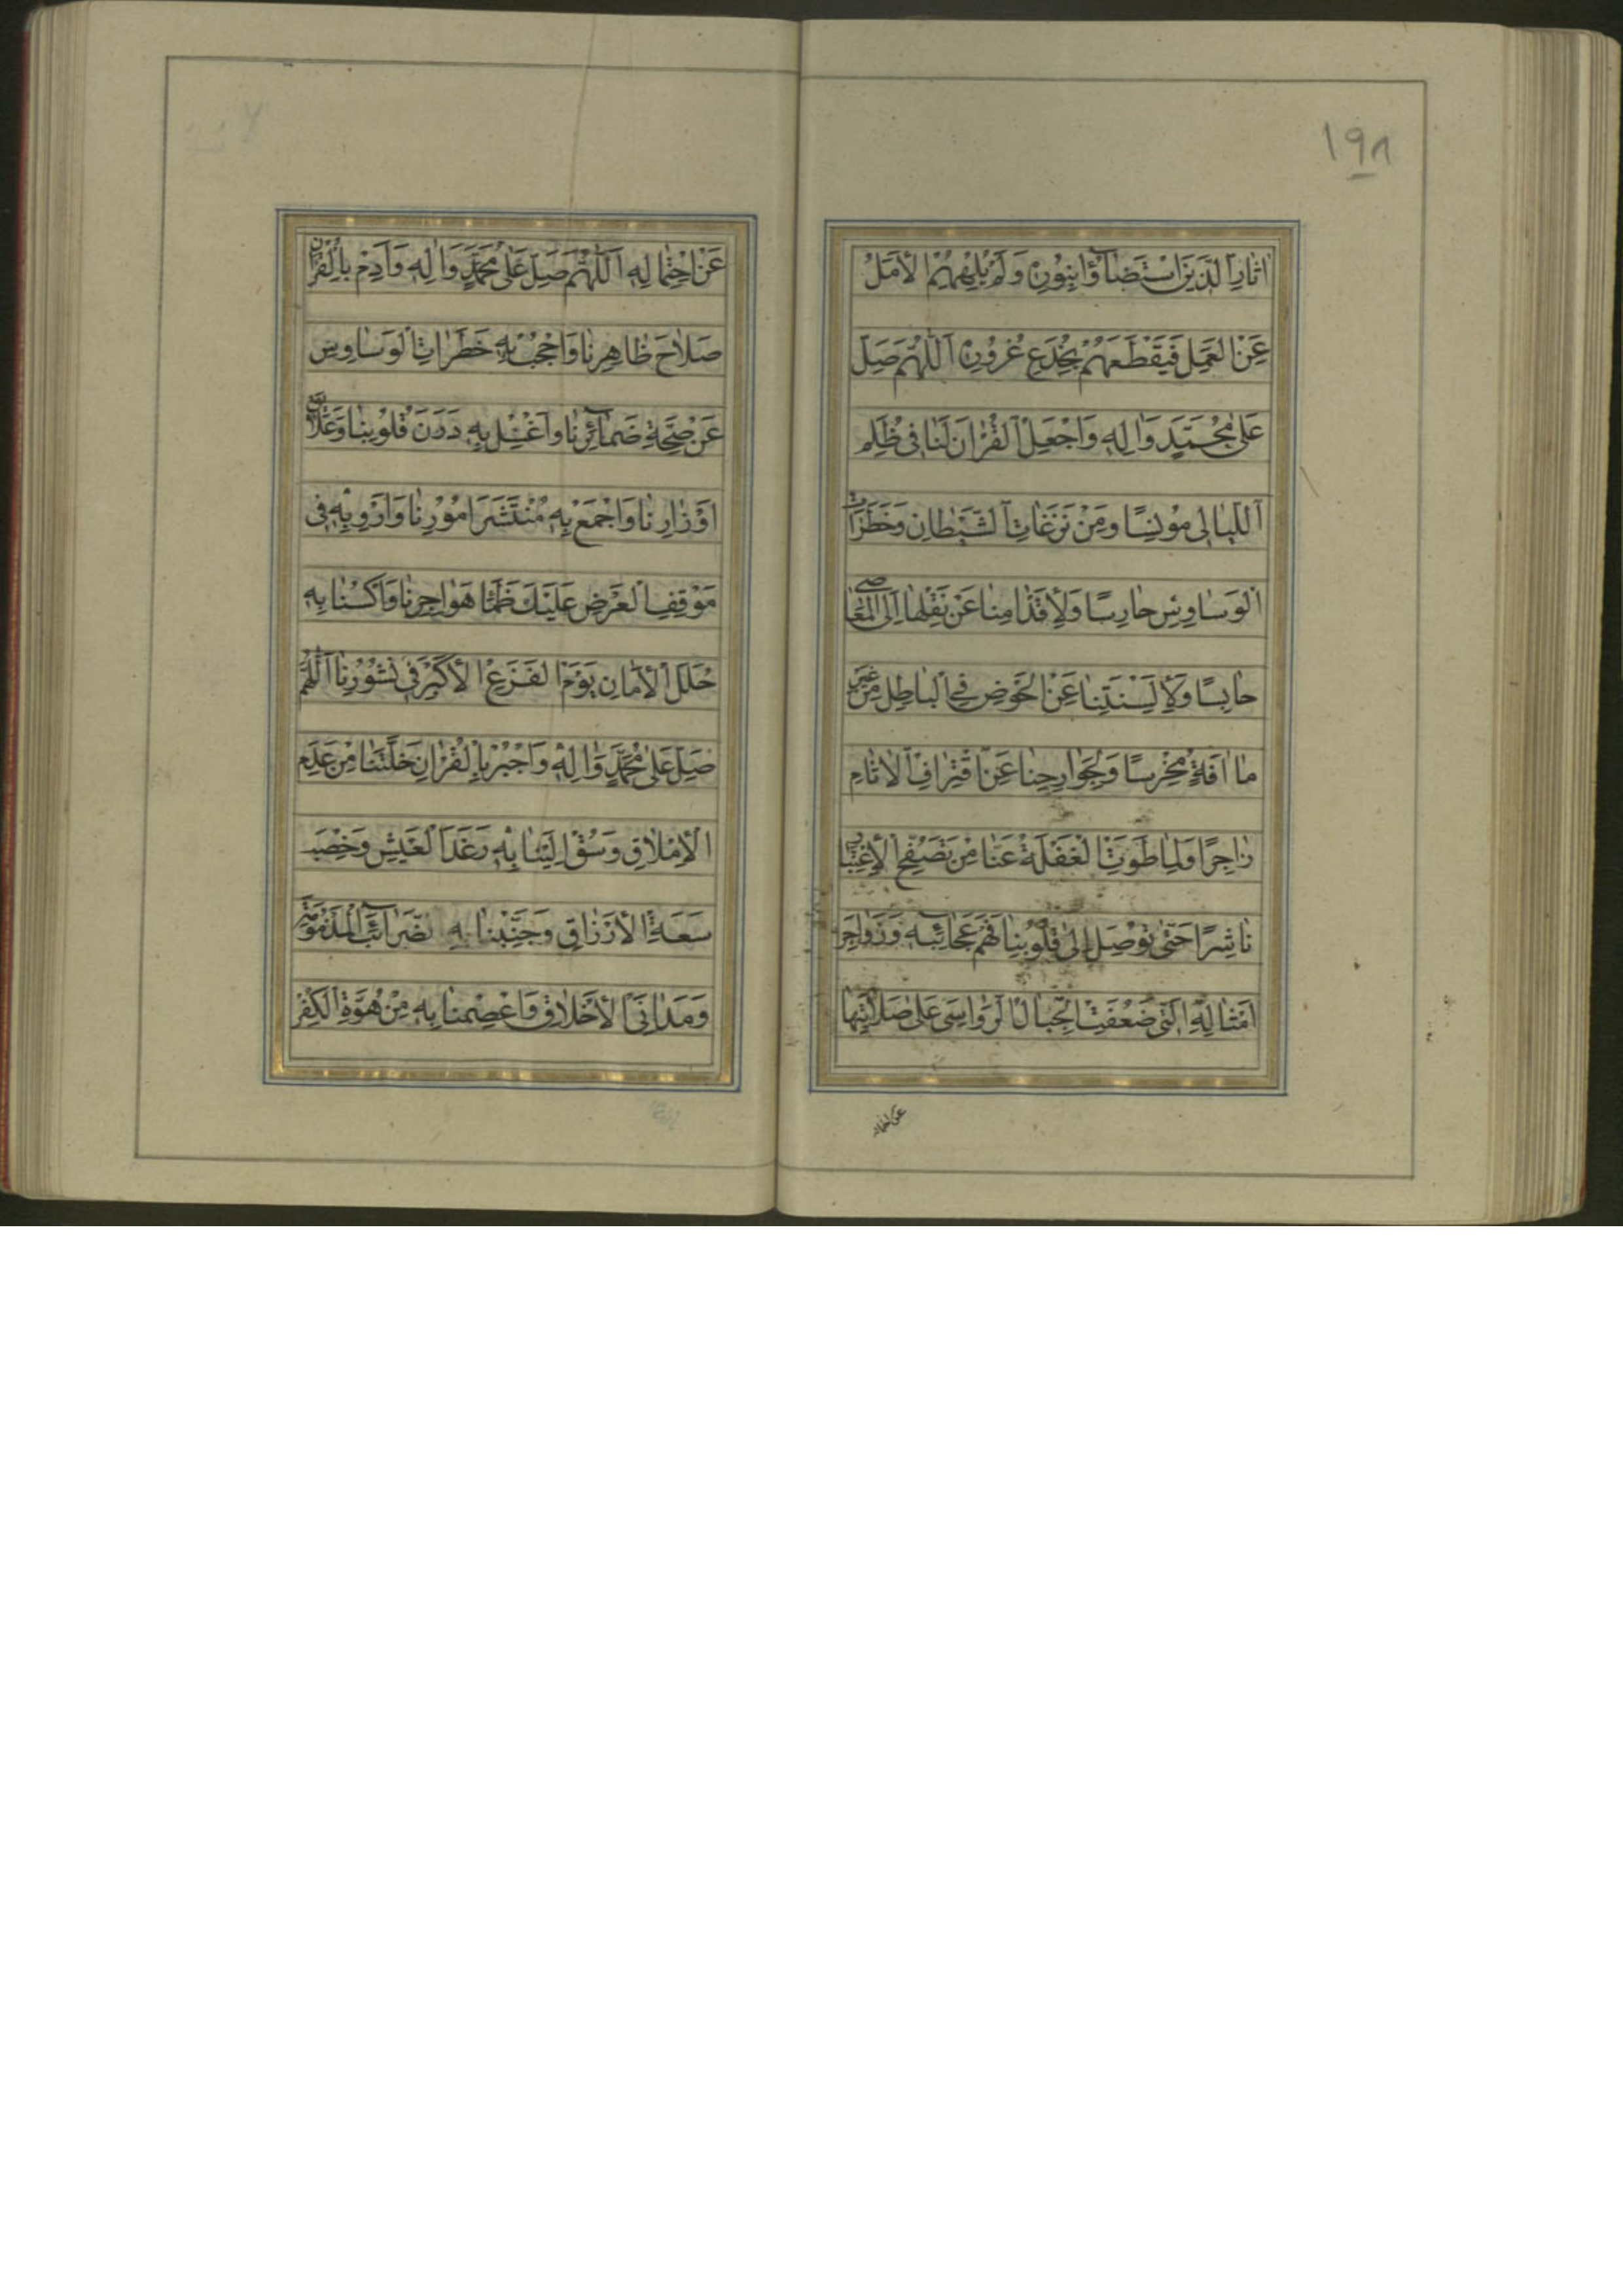 ١٩٨
اٰثارِ الَّذينَ اسْتَضٰٓاؤُا بِنُورِهٖ وَلَمْ يُلْهِهِمُ الْأَمَلُ
عَنِ الْعَمَلِ فَيَقْطَعَهُمْ بِخُدَعِ غُرُورِهٖ اَللّٰهُمَّ صَلِّ
عَلىٰ مُحَمَّدٍ وَاٰلِهٖ وَاجْعَلِ الْقُرْاٰنَ لَنٰا فى ظُلَمِ
اللَّيٰالى مُونِسًا وَمِنْ نَزَغٰاتِ الشَّيْطٰانِ وَخَطَرٰاتِ
الْوَسٰاوِسِ حٰارِسًا وَلِأَقْدٰامِنٰا عَنْ نَقْلِهٰا اِلَى الْمَعٰاصى
حٰابِسًا وَلِأَلْسِنَتِنٰا عَنِ الْخَوْضِ فِى الْبٰاطِلِ مِنْ غَيْرِ
مٰا اٰفَةٍ مُخْرِسًا وَلِجَوٰارِحِنٰا عَنِ اقْتِرٰافِ الْاٰثٰامِ
زٰاجِرًا وَلِمٰا طَوَتِ الْغَفْلَةُ عَنّٰا مِنْ تَصَفُّحِ الْإِعْتِبٰارِ
نٰاشِرًا حَتّٰى تُوصِلَ اِلىٰ قُلُوبِنٰا فَهْمَ عَجٰٓائِبِهٖ وَزَوٰاجِرَ
اَمْثٰالِهِ الَّتى ضَعُفَتِ الْجِبٰالُ الرَّوٰاسى عَلىٰ صَلٰابَتِهٰا
عن احتماله
عَنِ احْتِمٰالِهٖ اَللّٰهُمَّ صَلِّ عَلىٰ مُحَمَّدٍ وَاٰلِهٖ وَاَدِمْ بِالْقُرْاٰنِ
صَلٰاحَ ظٰاهِرِنٰا وَاحْجُبْ بِهٖ خَطَرٰاتِ الْوَسٰاوِسِ
عَنْ صِحَّةِ ضَمٰٓائِرِنٰا وَاغْسِلْ بِهٖ دَرَنَ قُلُوبِنٰا وَعَلٰائِقَ
اَوْزٰارِنٰا وَاجْمَعْ بِهٖ مُنْتَشَرَ اُمُورِنٰا وَاَرْوِ بِهٖ فى
مَوْقِفِ الْعَرْضِ عَلَيْكَ ظَمَأَ هَوٰاجِرِنٰا وَاكْسُنٰا بِهٖ
حُلَلَ الْأَمٰانِ يَوْمَ الْفَزَعِ الْأَكْبَرِ فى نُشُورِنٰا اَللّٰهُمَّ
صَلِّ عَلىٰ مُحَمَّدٍ وَاٰلِهٖ وَاجْبُرْ بِالْقُرْاٰنِ خَلَّتَنٰا مِنْ عَدَمِ
الْإِمْلٰاقِ وَسُقْ اِلَيْنٰا بِهٖ رَغَدَ الْعَيْشِ وَخِصْبَ
سَعَةِ الْأَرْزٰاقِ وَجَنِّبْنٰا بِهِ الضَّرٰٓائِبَ الْمَذْمُومَةَ
وَمَدٰانِىَ الْأَخْلٰاقِ وَاعْصِمْنٰا بِهٖ مِنْ هُوَّةِ الْكُفْرِ